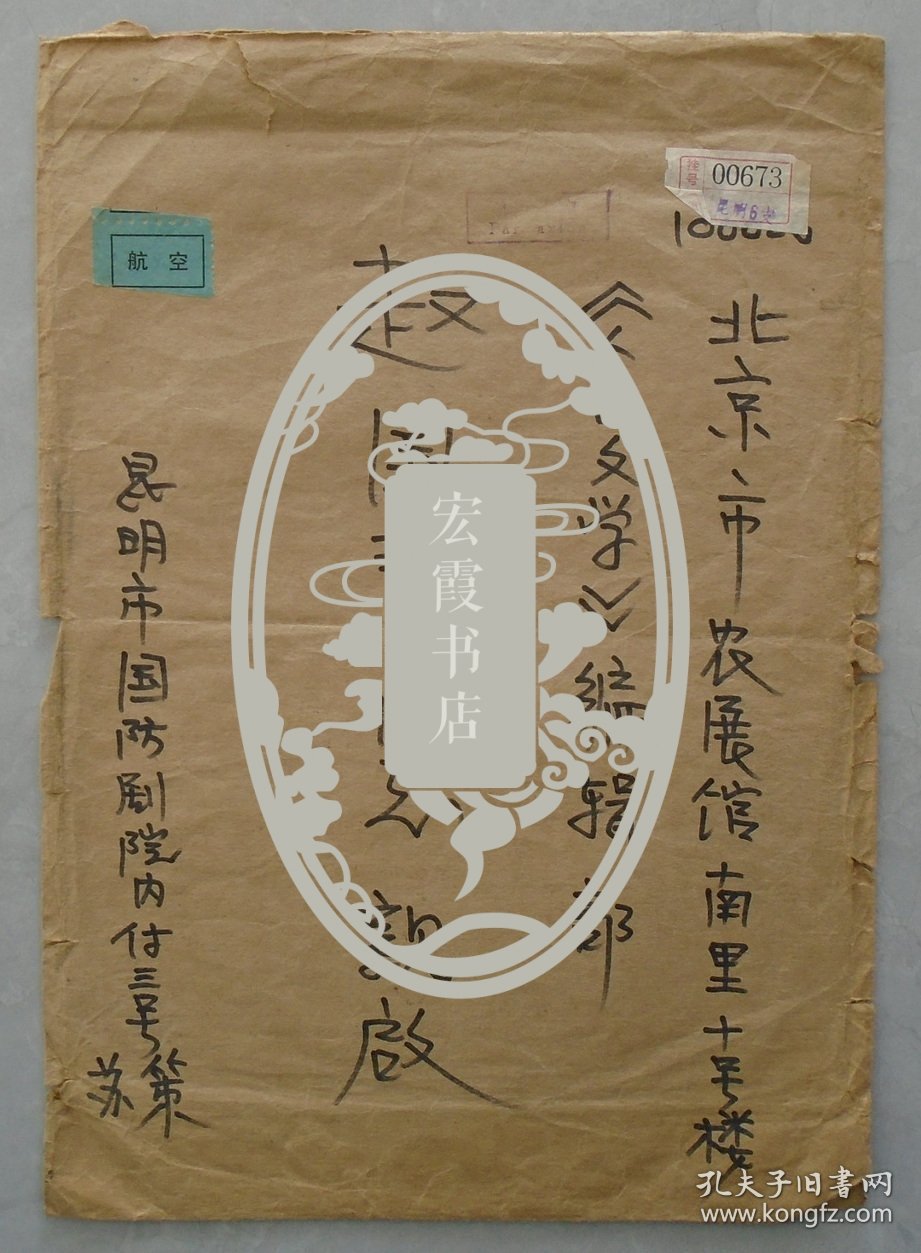 挂号 00673
昆明6支
航空
北京市农展馆南里十号楼
文学》编辑部
赵国 亲启
昆明市国防剧院内付三号
苏策
宏霞书店
孔夫子旧书网
www.kongfz.com